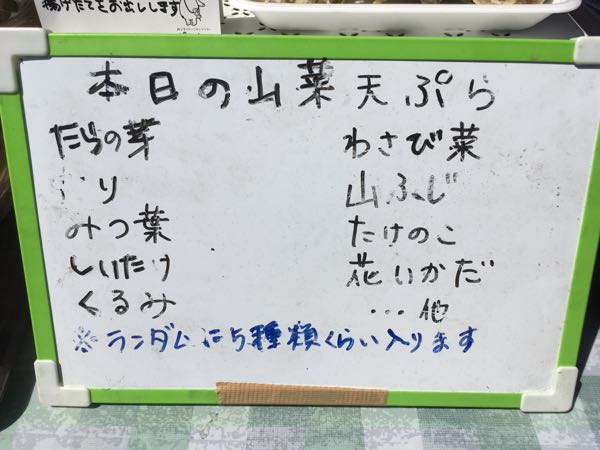 揚げたてをお出しします
本日の山菜天ぷら
だらの芽
り
みつ葉
しいたけ
くるみ
わさび菜
山ふじ
たけのこ
花いかだ
…他
※ランダムに5種類くらい入ります